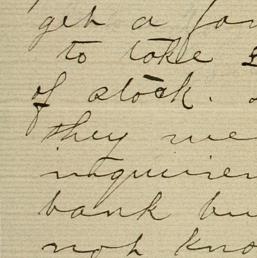 get a for
to take £
of stock.
they we
inquirer
bank bu
not kno